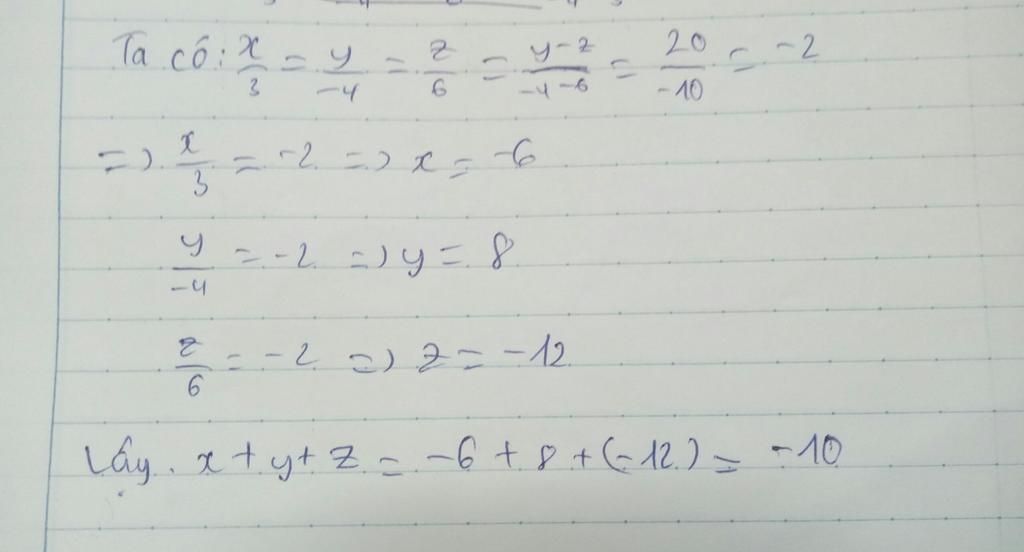 Ta có: x/3 = y/-4 = z/6 = y-z/-4-6 = 20/-10 = -2
=> x/3 = -2 => x = -6
y/-4 = -2 => y = 8
z/6 = -2 => z = -12
Vậy. x + y + z = -6 + 8 + (-12) = -10